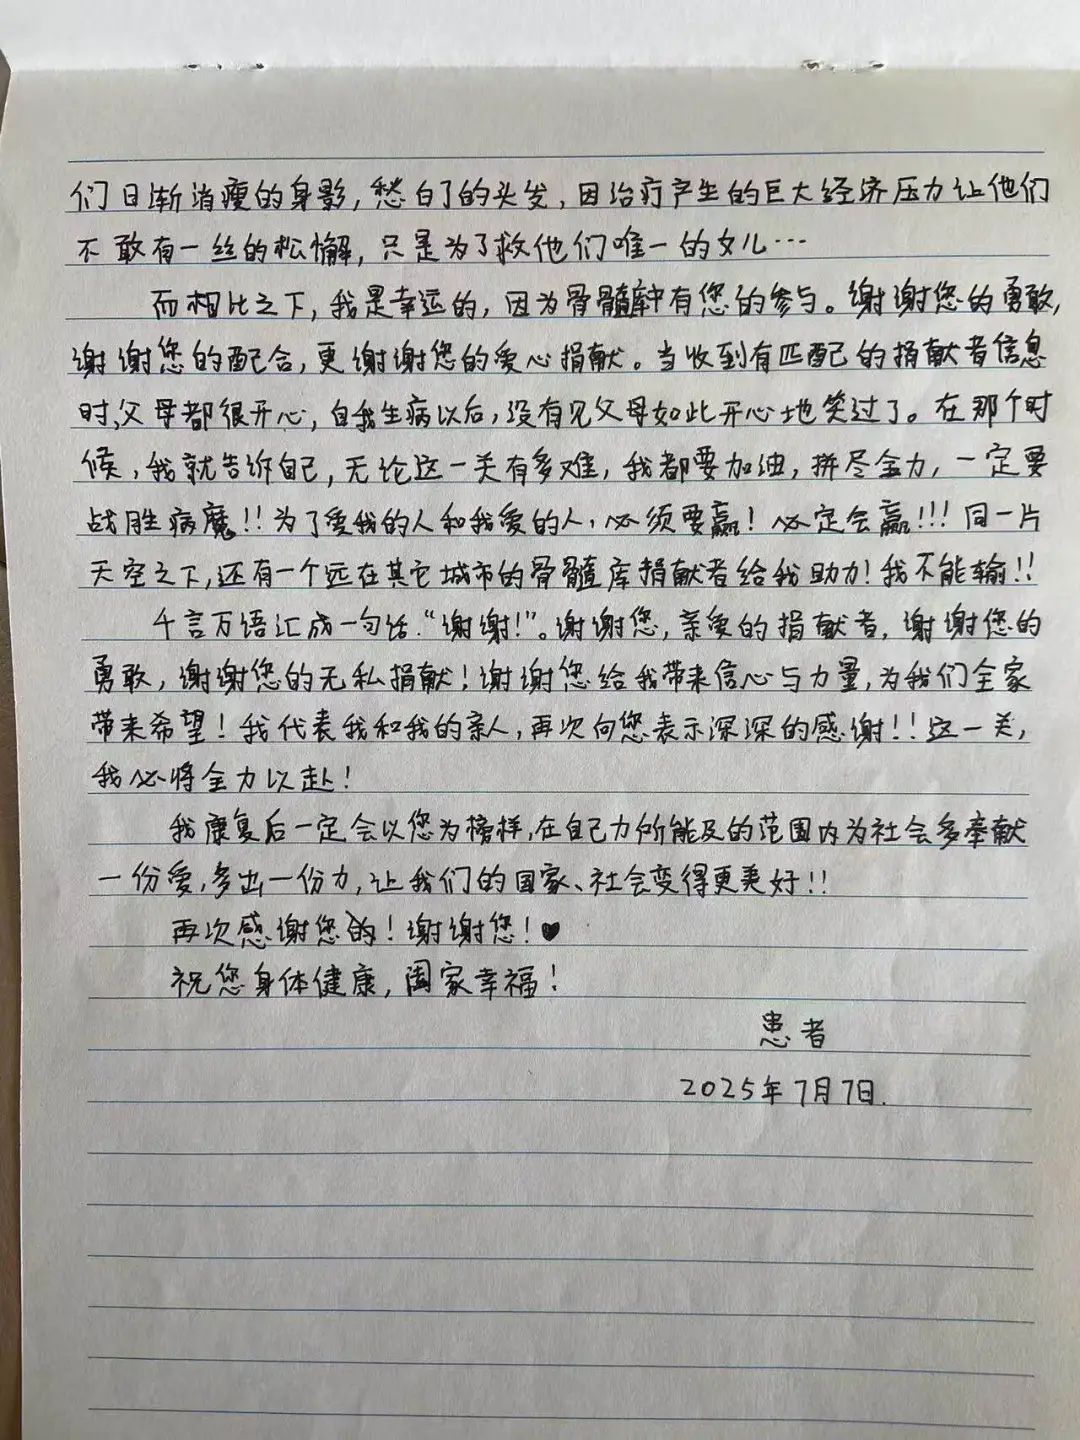 们日渐消瘦的身影，愁白了的头发，因治疗产生的巨大经济压力让他们
不敢有一丝的松懈，只是为了救他们唯一的女儿…
而相比之下，我是幸运的，因为骨髓库中有您的参与。谢谢您的勇敢，
谢谢您的配合，更谢谢您的爱心捐献。当收到有匹配的捐献者信息
时，父母都很开心，自我生病以后，没有见父母如此开心地笑过了。在那个时
候，我就告诉自己，无论这一关有多难，我都要加油，拼尽全力，一定要
战胜病魔！！为了爱我的人和我爱的人，必须要赢！必定会赢！！！同一片
天空之下，还有一个远在其它城市的骨髓库捐献者给我助力！我不能输！！
千言万语汇成一句话：“谢谢！”。谢谢您，亲爱的捐献者，谢谢您的
勇敢，谢谢您的无私捐献！谢谢您给我带来信心与力量，为我们全家
带来希望！我代表我和我的亲人，再次向您表示深深的感谢！！这一关，
我必将全力以赴！
我康复后一定会以您为榜样，在自己力所能及的范围内为社会多奉献
一份爱，多出一份力，让我们的国家、社会变得更美好！！
再次感谢您的！谢谢您！♥
祝您身体健康，阖家幸福！
患者
2025年7月7日.